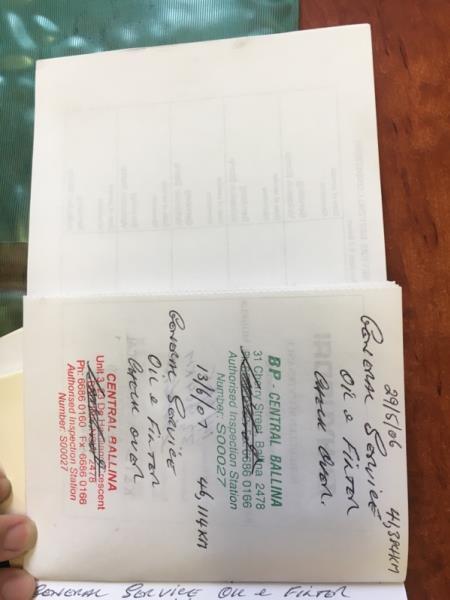 29/5/06 41,384KM
GENERAL SERVICE
OIL & FILTER
CHECK OVER.
BP - CENTRAL BALLINA
31 Cherry Street, Ballina 2478
6686 0166
Authorised Inspection Station
Number: S00027
13/6/07 46,114KM
GENERAL SERVICE
OIL & FILTER
CHECK OVER
CENTRAL BALLINA
Unit 3, De Havilland Crescent
2478
Ph: 6686 0160 Fx: 6686 0166
Authorised Inspection Station
Number: S00027
GENERAL SERVICE OIL & FILTER